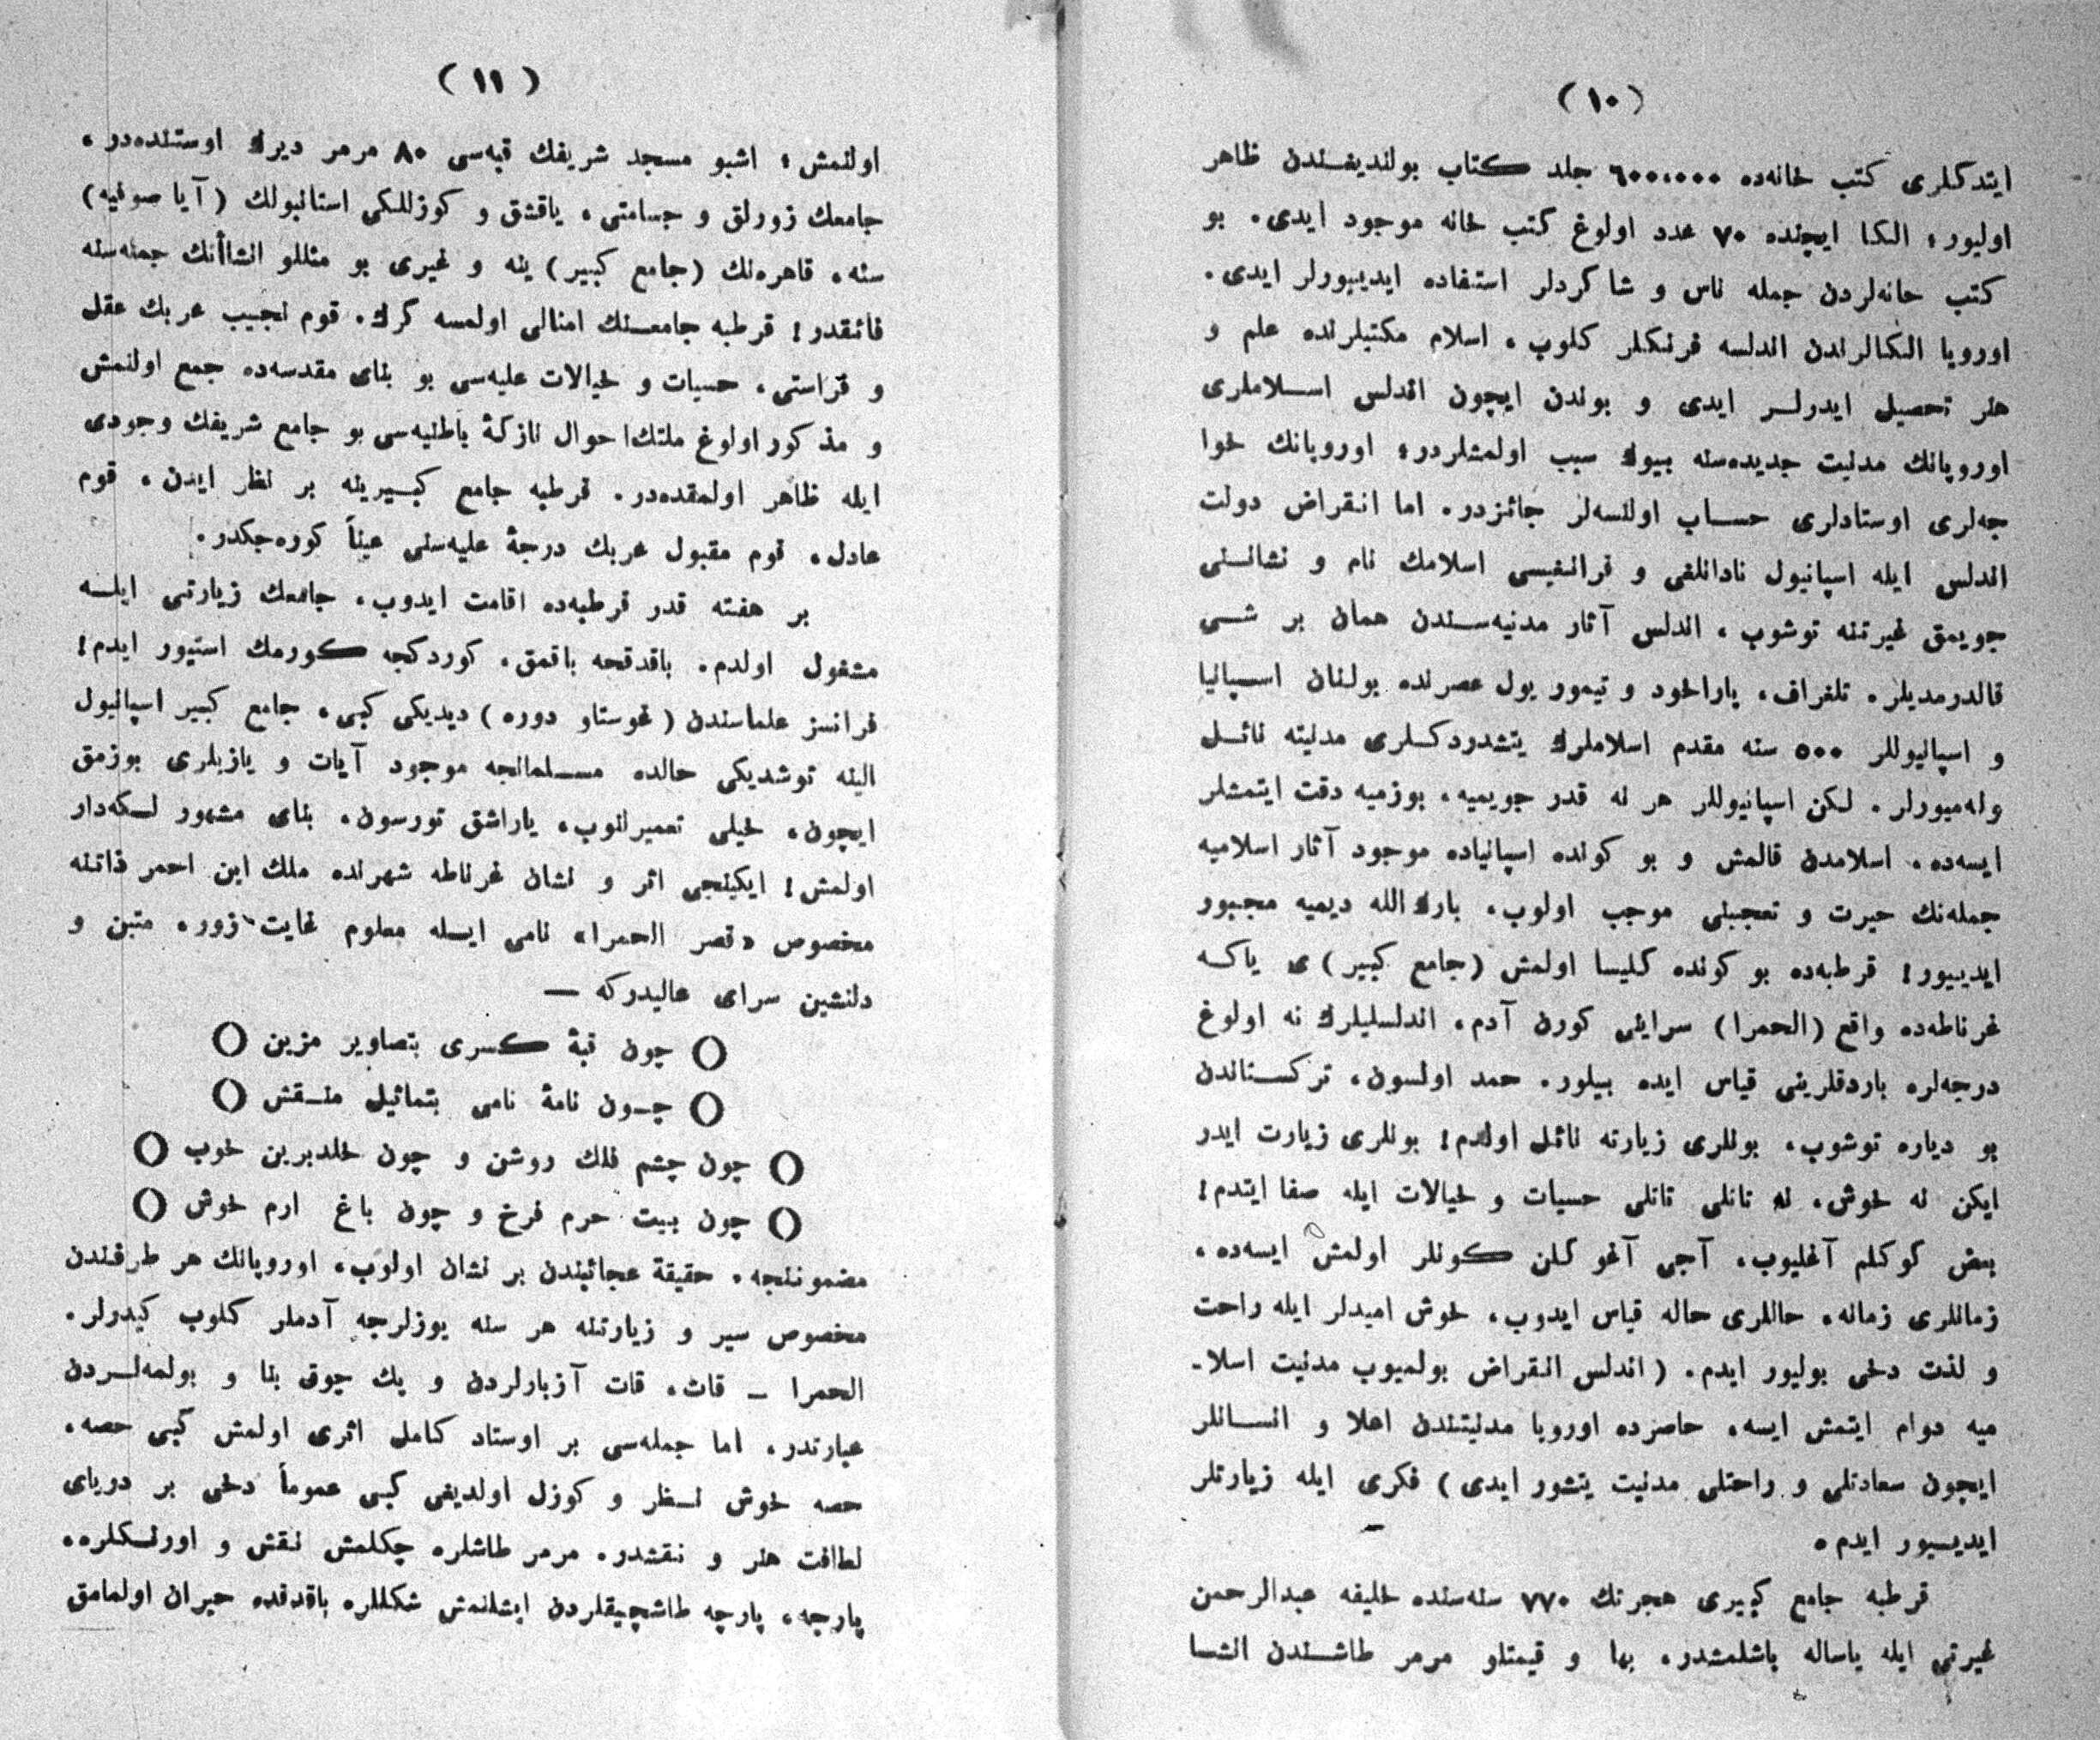 (١٠)
ايتدكلرى كتب خانه‌ده ٦٠٠،٠٠٠ جلد كتاب بولنديغندن ظاهر
اوليور؛ الكا ايچنده ٧٠ عدد اولوغ كتب خانه موجود ايدى. بو
كتب خانه‌لردن جمله ناس و شاكردلر استفاده ايدييورلر ايدى.
اوروپا الكالرندن اندلسه فرنكلر كلوب، اسلام مكتبلرنده علم و
هنر تحصيل ايدرلر ايدى و بوندن ايچون اندلس اسلاملرى
اوروپانك مدنيت جديده‌سنه بيوك سبب اولمشلردر؛ اوروپانك خوا
جه‌لرى اوستادلرى حساب اولنسه‌لر جائزدر. اما انقراض دولت
اندلس ايله اسپانيول نادانلغى و فرانغيسى اسلامك نام و نشاننى
جويمق غيرتنه توشوب، اندلس آثار مدنيه‌سندن همان بر شى
قالدرمديلر. تلغراف، پاراخود و تيمور يول عصرنده بولنان اسپانيا
و اسپانيوللر ٥٠٠ سنه مقدم اسلاملرك يتشدردكلرى مدنيته نائل
وله‌ميورلر. لكن اسپانيوللر هر نه قدر جويميه، بوزميه دقت ايتمشلر
ايسه‌ده، اسلامدن قالمش و بو كونده اسپانياده موجود آثار اسلاميه
جمله‌نك حيرت و تعجبنى موجب اولوب، بارك الله ديميه مجبور
ايدييور! قرطبه‌ده بو كونده كليسا اولمش (جامع كبير) ى ياكه
غرناطه‌ده واقع (الحمرا) سراينى كورن آدم، اندلسليلرك نه اولوغ
درجه‌لره باردقلرينى قياس ايده بيلور. حمد اولسون، تركستاندن
بو دياره توشوب، بونلرى زيارته نائل اولدم! بونلرى زيارت ايدر
ايكن نه خوش، نه تاتلى تاتلى حسيات و خيالات ايله صفا ايتدم!
بعض كوكلم آغليوب، آجى آغو كلن كونلر اولمش ايسه‌ده،
زمانلرى زمانه، حاللرى حاله قياس ايدوب، خوش اميدلر ايله راحت
و لذت دخى بوليور ايدم. (اندلس انقراض بولميوب مدنيت اسلا-
ميه دوام ايتمش ايسه، حاضرده اوروپا مدنيتندن اعلا و انسانلر
ايچون سعادتلى و راحتلى مدنيت يتشور ايدى) فكرى ايله زيارتلر
ايدييور ايدم.
قرطبه جامع كبيرى هجرتك ٧٧٠ سنه‌سنده خليفه عبدالرحمن
غيرتى ايله ياساله باشلمشدر، بها و قيمتلو مرمر طاشندن انشا
(١١)
اولنمش؛ اشبو مسجد شريفك قبه‌سى ٨٠ مرمر ديرك اوستنده‌در،
جامعك زورلق و جسامتى، ياقشق و كوزللكى استانبولك (آيا صوفيه)
سنه، قاهره‌نك (جامع كبير) ينه و غيرى بو مثللو انشاأنك جمله‌سنه
فائقدر! قرطبه جامعنك امثالى اولمسه كرك. قوم نجيب عربك عقل
و فراستى، حسيات و خيالات عليه‌سى بو بناى مقدسه‌ده جمع اولنمش
و مذكور اولوغ ملتك احوال نازكۀ باطنيه‌سى بو جامع شريفك وجودى
ايله ظاهر اولمقده‌در. قرطبه جامع كبيرينه بر نظر ايدن، قوم
عادل، قوم مقبول عربك درجۀ عليه‌سنى عيناً كوره‌جكدر.
بر هفته قدر قرطبه‌ده اقامت ايدوب، جامعك زيارتى ايله
مشغول اولدم. باقدقجه باقمق، كوردكجه كورمك استيور ايدم!
فرانسز علماسندن (غوستاو دوره) ديديكى كبى، جامع كبير اسپانيول
الينه توشديكى حالده مسلمانجه موجود آيات و يازيلرى بوزمق
ايچون، خيلى تعميرلنوب، ياراشق تورسون، بناى مشهور لكه‌دار
اولمش! ايكينجى اثر و نشان غرناطه شهرنده ملك ابن احمر ذاتنه
مخصوص «قصر الحمرا» نامى ايله معلوم غايت زور، متين و
دلنشين سراى عاليدركه —
چون قبۀ كسرى بتصاوير مزين
چون نامۀ نامى بتماثيل منقش
چون چشم فلك روشن و چون خلدبرين خوب
چون بيت حرم فرخ و چون باغ ارم خوش
مضموننجه، حقيقة عجائبدن بر نشان اولوب، اوروپانك هر طرفندن
مخصوص سير و زيارتنه هر سنه يوزلرجه آدملر كلوب كيدرلر.
الحمرا — قات، قات آزبارلردن و پك چوق بنا و بولمه‌لردن
عبارتدر، اما جمله‌سى بر اوستاد كامل اثرى اولمش كبى حصه،
حصه خوش نظر و كوزل اولديغى كبى عموماً دخى بر درياى
لطافت هنر و نقشدر. مرمر طاشلره چكلمش نقش و اورنكلره،
پارچه، پارچه طاشچيقلردن ايشلنمش شكللره باقدقده حيران اولمامق